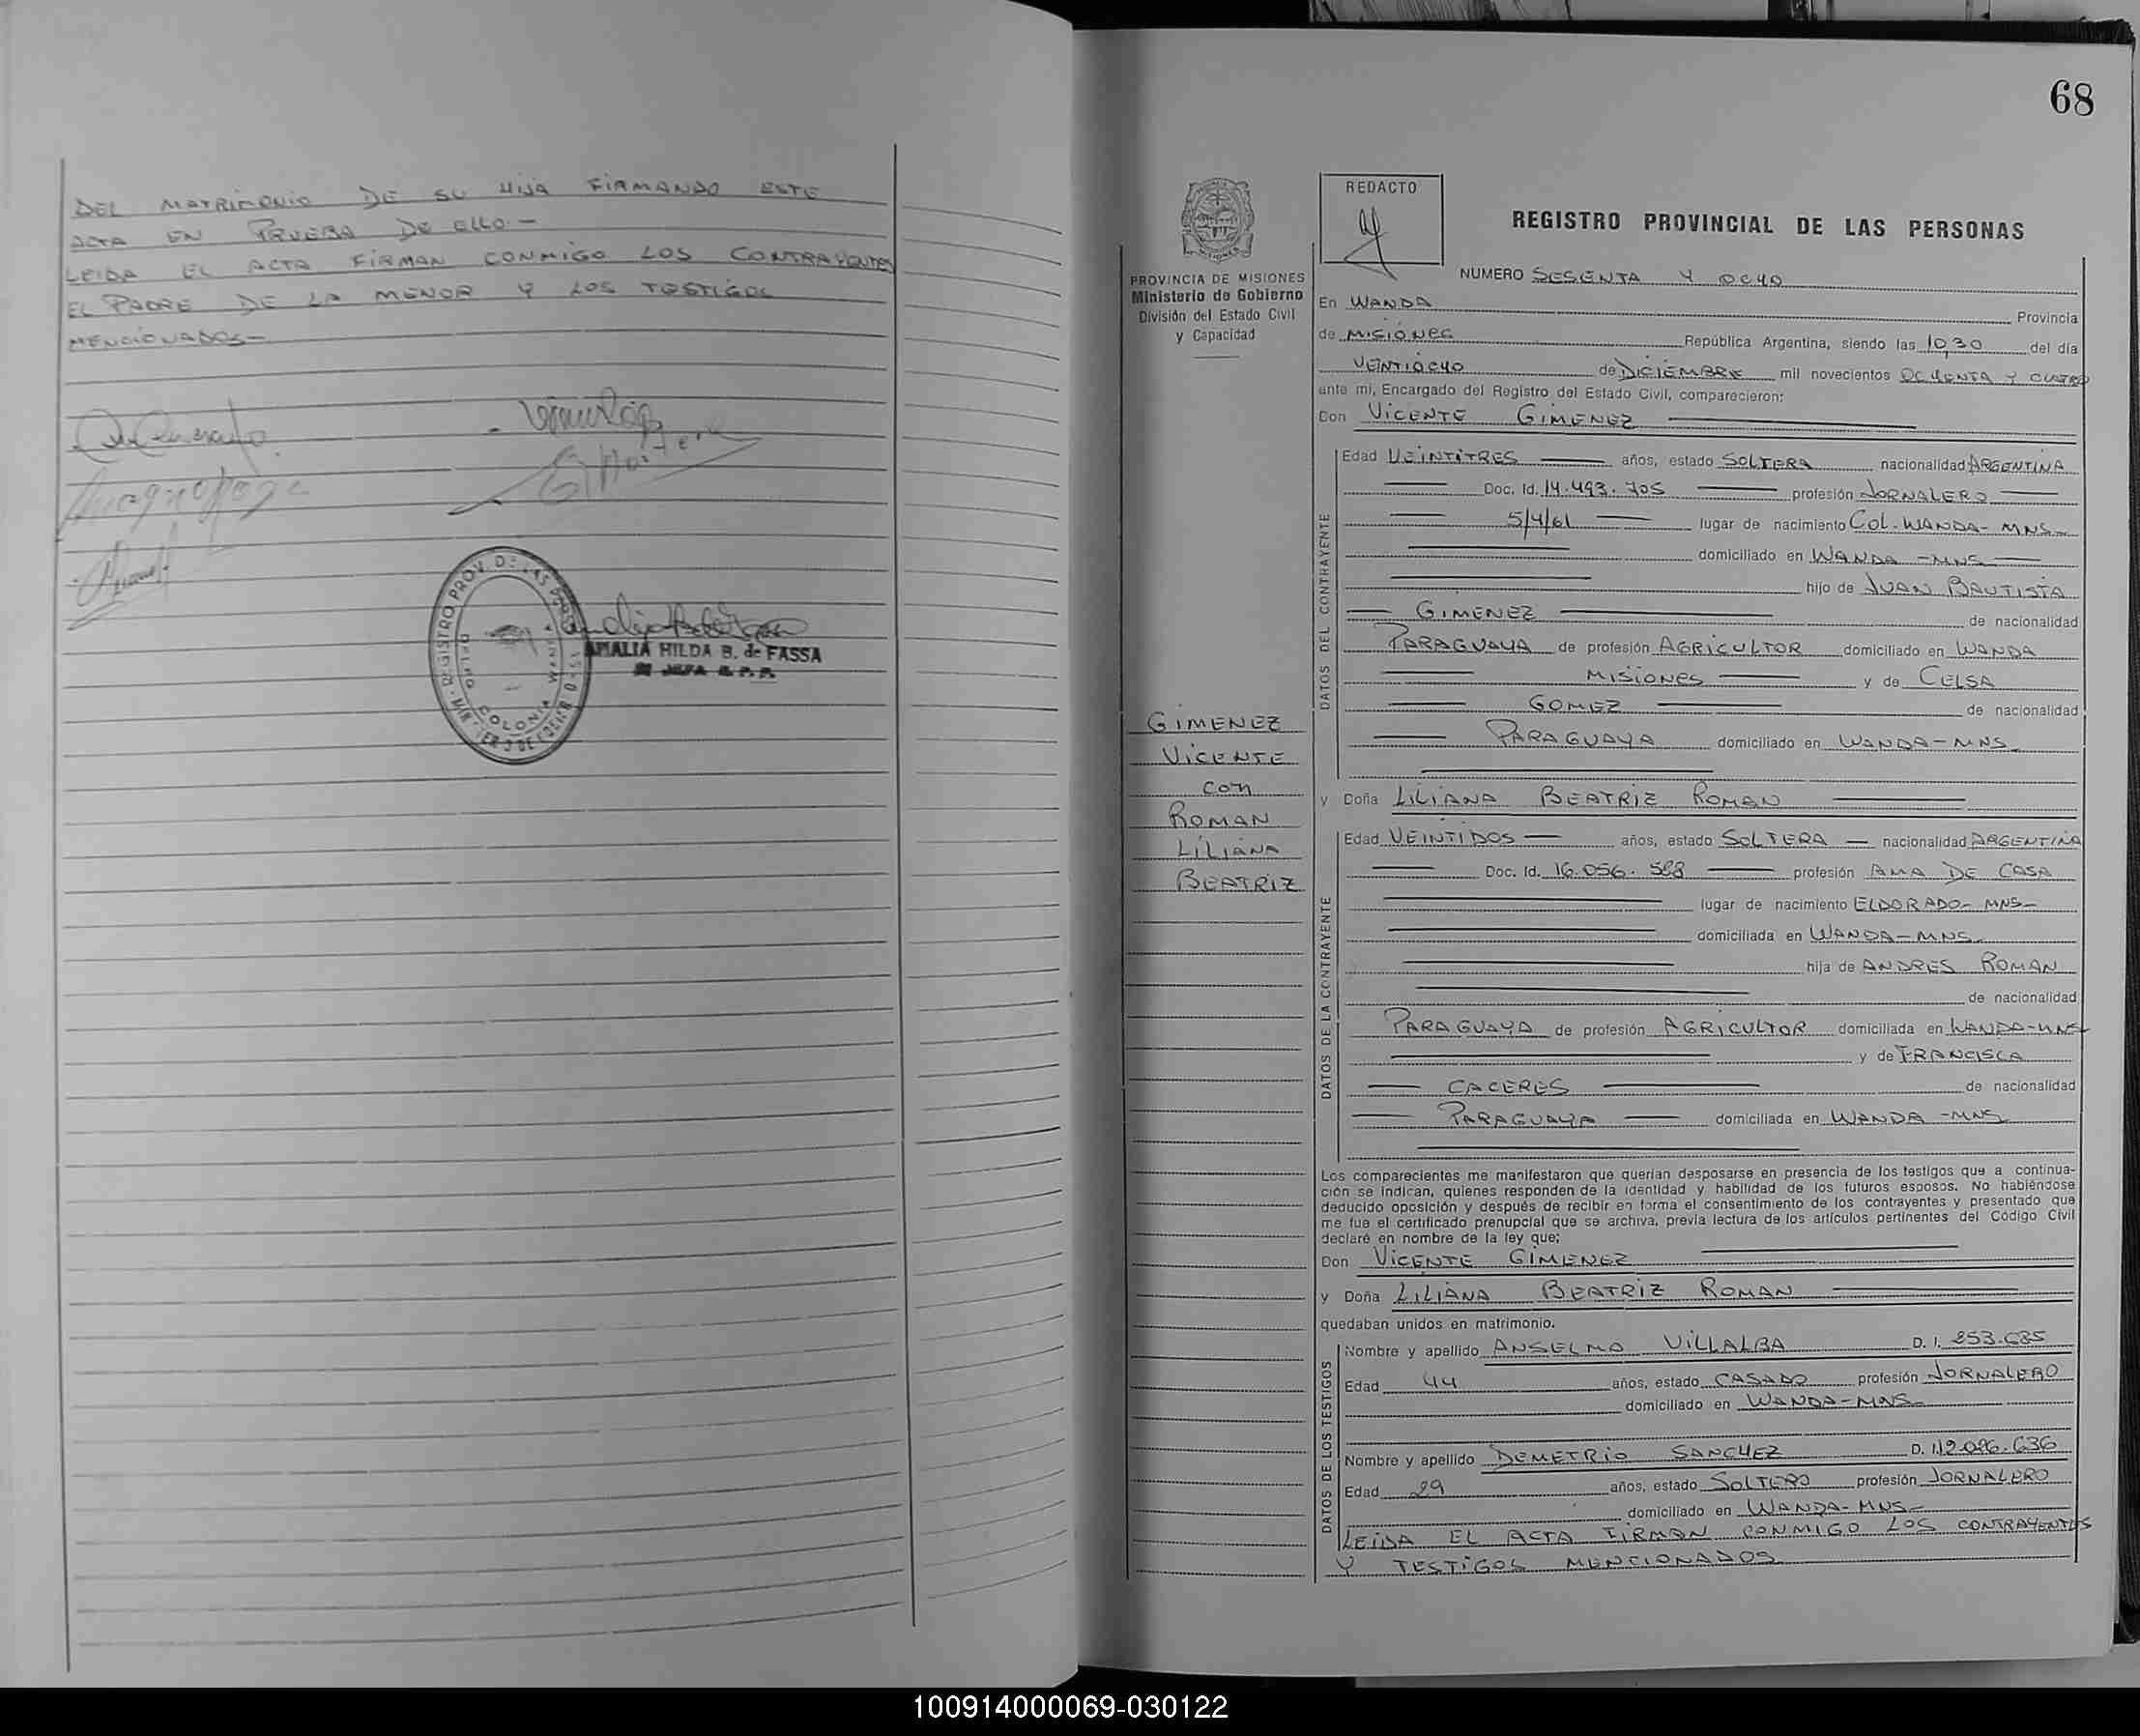 DEL MATRIMONIO DE SU HIJA FIRMANDO ESTE
ACTA EN PRUEBA DE ELLO.-
LEIDA EL ACTA FIRMAN CONMIGO LOS CONTRAYENTES
EL PADRE DE LA MENOR Y LOS TESTIGOS
MENCIONADOS-
REGISTRO PROV. DE LAS
COLONIA WANDA
AMALIA HILDA B. de FASSA
JEFA
68
REDACTO
REGISTRO PROVINCIAL DE LAS PERSONAS
PROVINCIA DE MISIONES
Ministerio de Gobierno
División del Estado Civil
y Capacidad
NUMERO SESENTA Y OCHO
En WANDA Provincia
de MISIONES República Argentina, siendo las 10,30 del día
VEINTIOCHO de DICIEMBRE mil novecientos OCHENTA Y CUATRO
ante mi, Encargado del Registro del Estado Civil, comparecieron:
Don VICENTE GIMENEZ
DATOS DEL CONTRAYENTE
Edad VEINTITRES años, estado SOLTERA nacionalidad ARGENTINA
Doc. Id. 14.493.705 profesión JORNALERO
5/4/61 lugar de nacimiento COL. WANDA- MNS-
domiciliado en WANDA -MNS-
hijo de JUAN BAUTISTA
GIMENEZ de nacionalidad
PARAGUAYA de profesión AGRICULTOR domiciliado en WANDA
MISIONES y de CELSA
GOMEZ de nacionalidad
PARAGUAYA domiciliado en WANDA-MNS-
GIMENEZ
VICENTE
con
ROMAN
LILIANA
BEATRIZ
y Doña LILIANA BEATRIZ ROMAN
DATOS DE LA CONTRAYENTE
Edad VEINTIDOS años, estado SOLTERA nacionalidad ARGENTINA
Doc. Id. 16.056. profesión AMA DE CASA
lugar de nacimiento ELDORADO- MNS-
domiciliada en WANDA-MNS-
hija de ANDRES ROMAN
de nacionalidad
PARAGUAYA de profesión AGRICULTOR domiciliada en WANDA-MNS
y de FRANCISCA
CACERES de nacionalidad
PARAGUAYA domiciliada en WANDA -MNS
Los comparecientes me manifestaron que querían desposarse en presencia de los testigos que a continua-
ción se indican, quienes responden de la identidad y habilidad de los futuros esposos. No habiéndose
deducido oposición y después de recibir en forma el consentimiento de los contrayentes y presentado que
me fue el certificado prenupcial que se archiva, previa lectura de los artículos pertinentes del Código Civil
declaré en nombre de la ley que;
Don VICENTE GIMENEZ
y Doña LILIANA BEATRIZ ROMAN
quedaban unidos en matrimonio.
DATOS DE LOS TESTIGOS
Nombre y apellido ANSELMO VILLALBA D. I. 253.635
Edad 44 años, estado CASADO profesión JORNALERO
domiciliado en WANDA-MNS-
Nombre y apellido DEMETRIO SANCHEZ D. I. 12.096.636
Edad 29 años, estado SOLTERO profesión JORNALERO
domiciliado en WANDA-MNS-
LEIDA EL ACTA FIRMAN CONMIGO LOS CONTRAYENTES
Y TESTIGOS MENCIONADOS
100914000069-030122